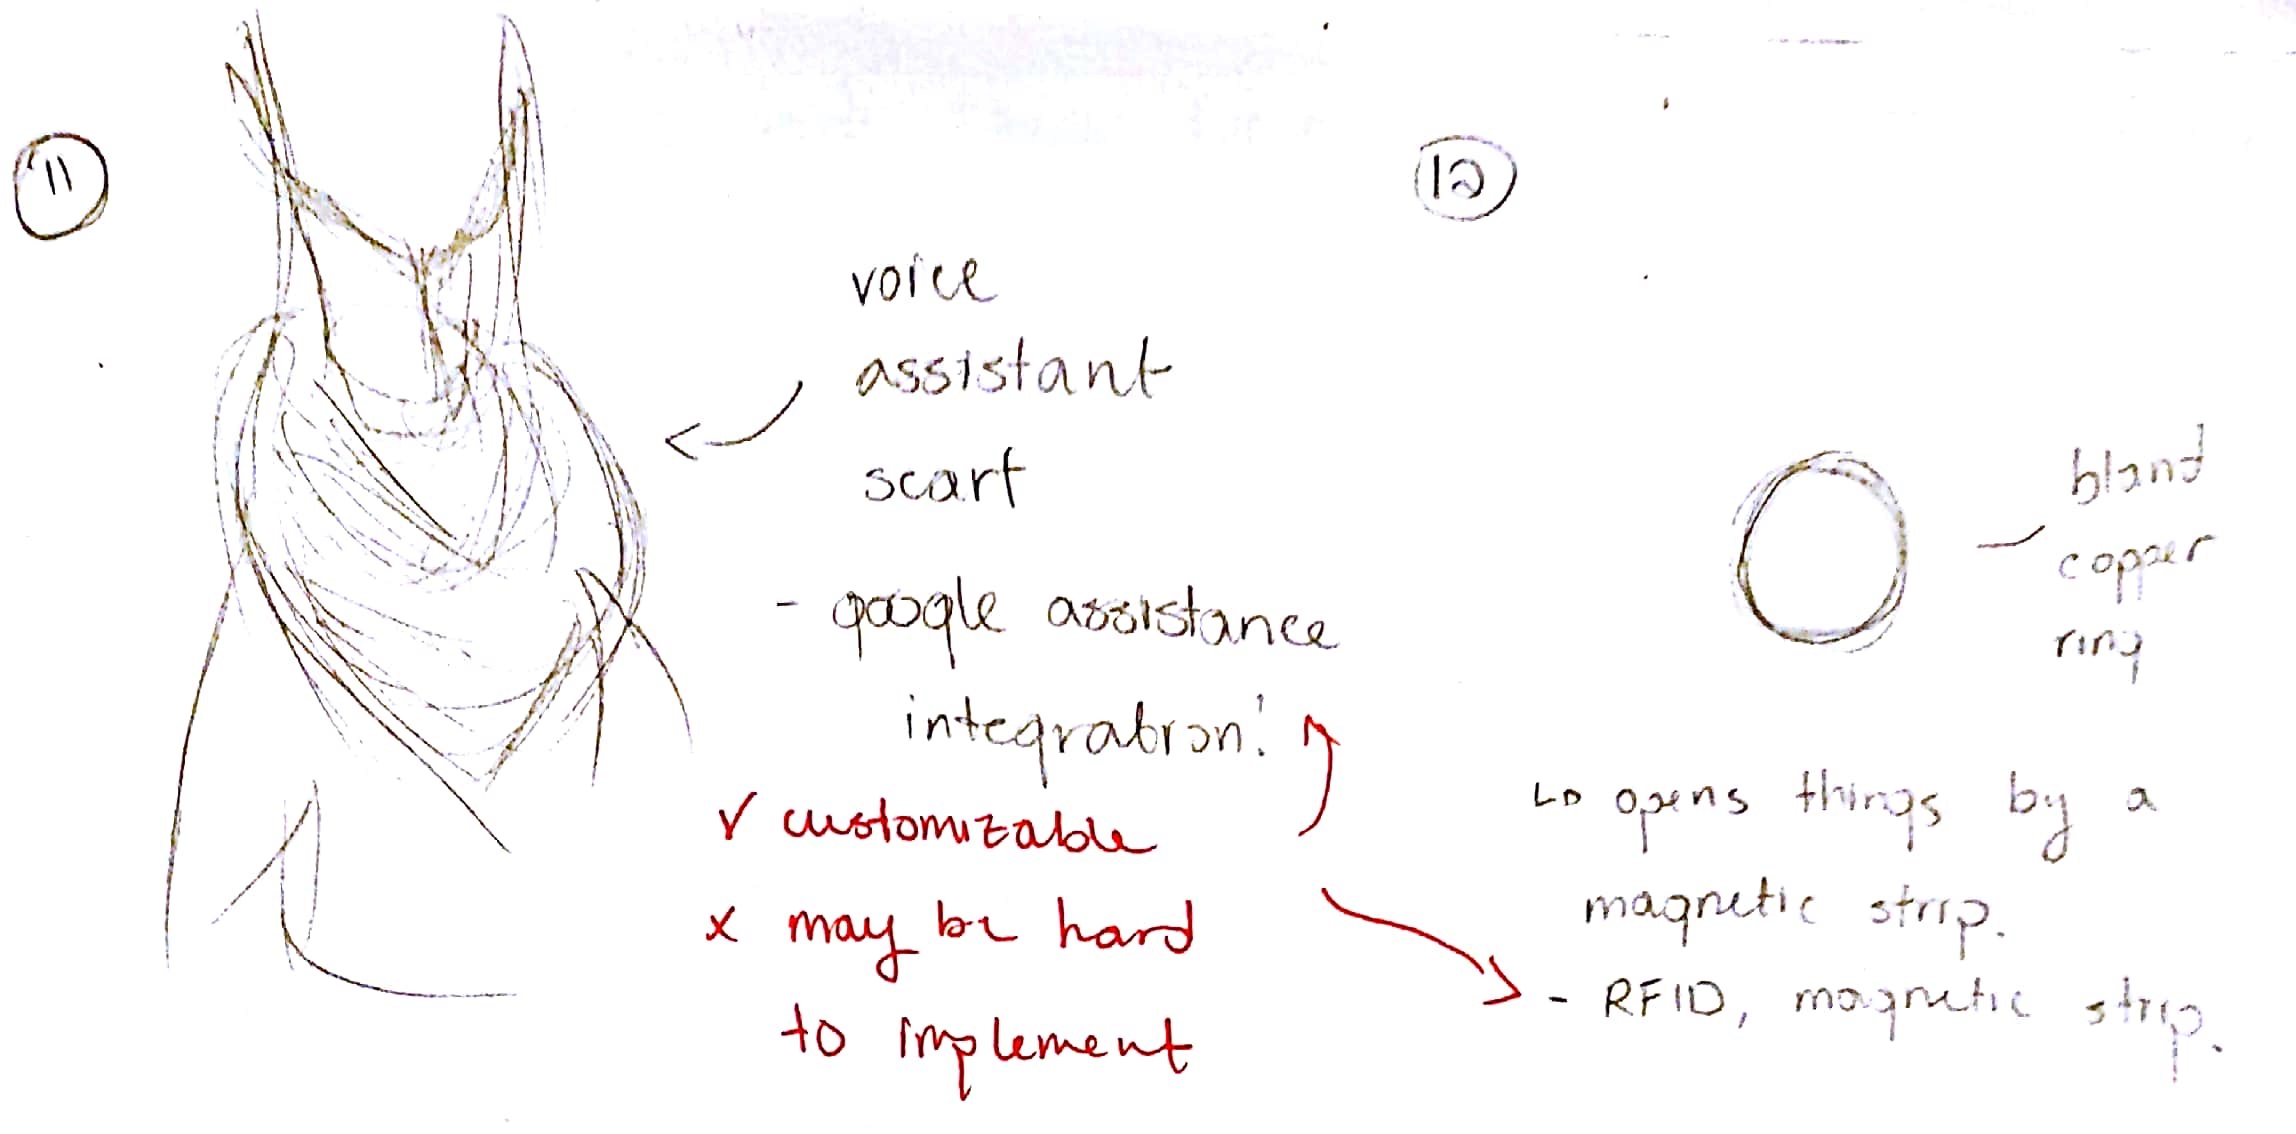 11
voice
assistant
scarf
- google assistance
integration!
✓ customizable
x may be hard
to implement
12
bland
copper
ring
↳ opens things by a
magnetic strip.
- RFID, magnetic strip.